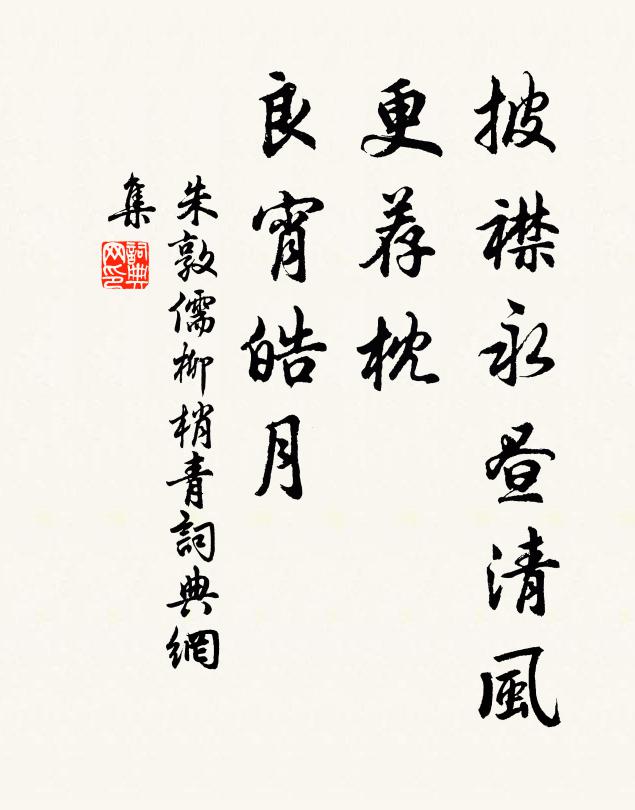 披襟永昼清風
更荐枕
良宵皓月
朱敦儒柳梢青詞典網
集
詞典網印